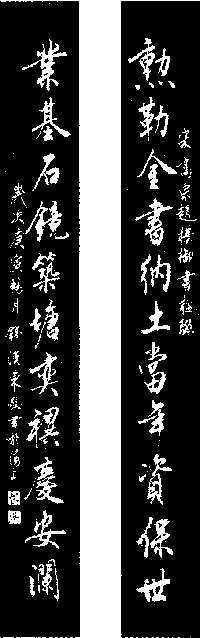 宋高宗趙構御書楹聯
勲勒金書納土當年資保世
業基石鏡築塘奕禩慶安瀾
歲次庚寅穐月錢漢東敬書於海上